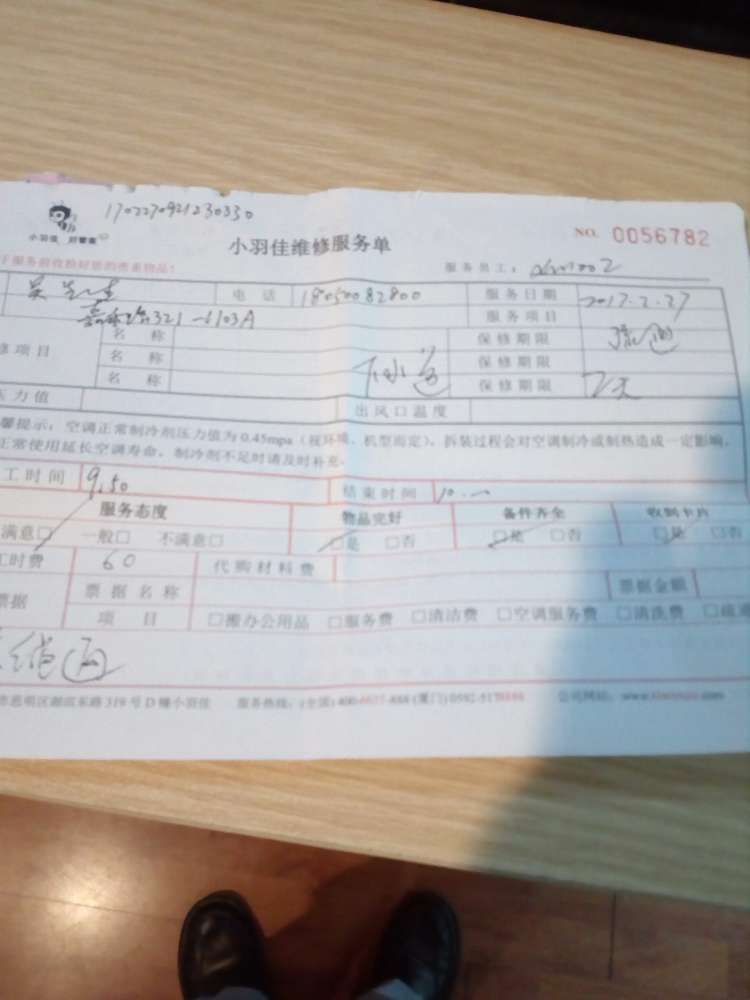 1702270921230330
小羽佳 好管家
小羽佳维修服务单
NO. 0056782
服务前收检好您的贵重物品!
服务员工:
电 话 18050082800 服务日期 2017.2.27
321-6103A 服务项目
修项目 名 称 保修期限
名 称 下水道 保修期限
名 称 保修期限 7天
压力值 出风口温度
馨提示:空调正常制冷剂压力值为 0.45mpa(视环境、机型而定),拆装过程会对空调制冷或制热造成一定影响,
正常使用延长空调寿命,制冷剂不足时请及时补充。
工时间 9.50 结束时间 10.
服务态度 物品完好 备件齐全 收到卡片
满意□ 一般□ 不满意□ □是 □否 □是 □否 □是 □否
工时费 60 代购材料费
票据 票据名称 票据金额
项 目 □搬办公用品 □服务费 □清洁费 □空调服务费 □清洗费
市思明区湖滨东路 319 号 D 幢小羽佳 服务热线:(全国)400-6677-888 (厦门)0592-5178888 公司网站: